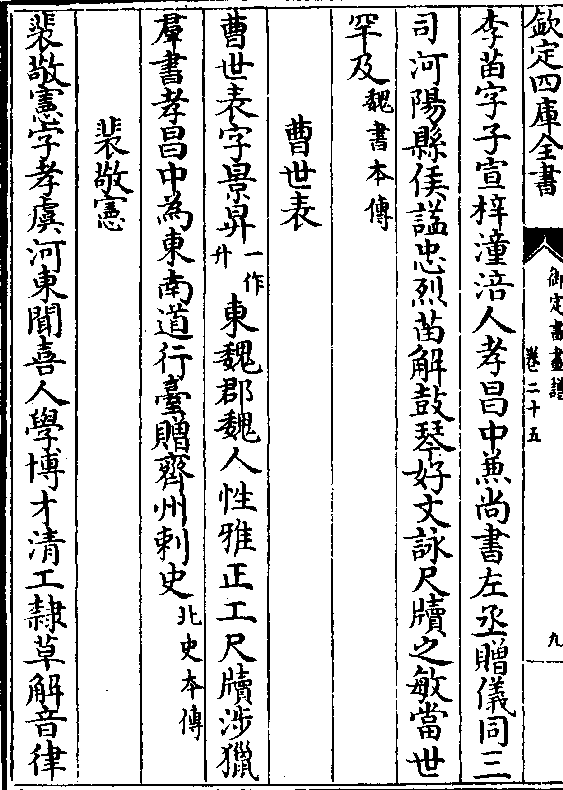 欽定四庫全書
御定書畫譜
卷二十五
九
李苗字子宣梓潼涪人孝昌中兼尚書左丞贈儀同三
司河陽縣侯諡忠烈苗解鼓琴好文詠尺牘之敏當世
罕及魏書本傳
曹世表
曹世表字景昇一作升東魏郡魏人性雅正工尺牘涉獵
羣書孝昌中為東南道行臺贈齊州刺史北史本傳
裴敬憲
裴敬憲字孝虞河東聞喜人學博才清工隸草解音律